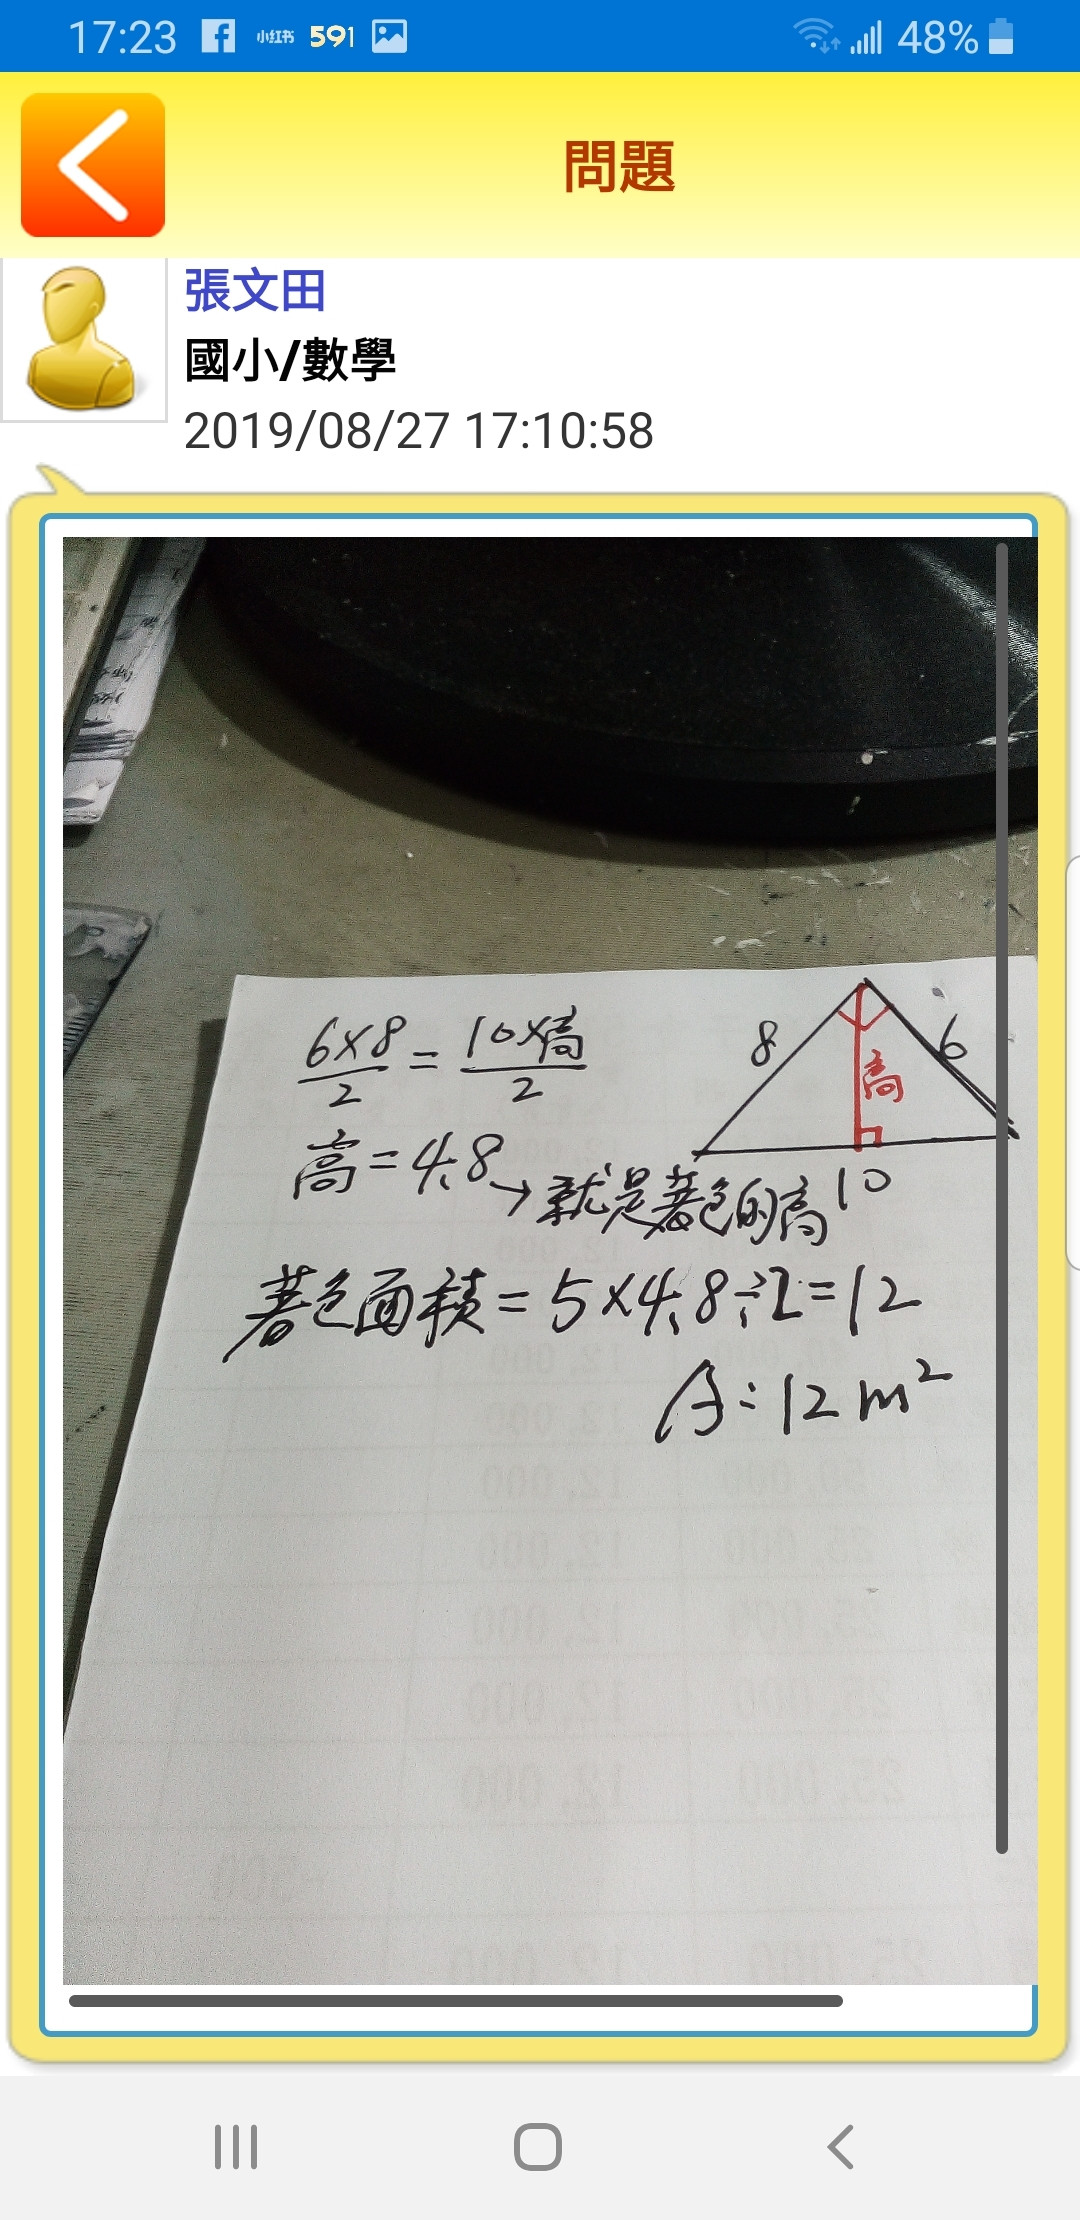 17:23 小红书 591 48%
問題
張文田
國小/數學
2019/08/27 17:10:58
6×8/2 = 10×高/2
8
6
高
10
高=4.8→就是著色的高
著色面積=5×4.8÷2=12
A:12m²